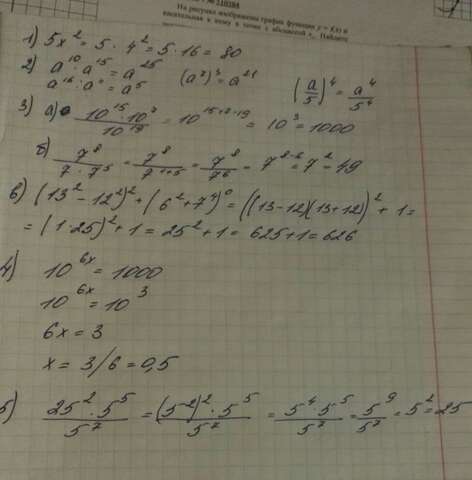 № 210384
На рисунке изображены график функции y = f(x) и
касательная к нему в точке с абсциссой x₀. Найдите
1) 5x² = 5 · 4² = 5 · 16 = 80
2) a¹⁰ · a¹⁵ = a²⁵ (a⁷)³ = a²¹ (a/5)⁴ = a⁴/5⁴
a¹⁶ : a¹¹ = a⁵
3) a) 10¹⁵ · 10⁷ / 10¹⁹ = 10¹⁵⁺⁷⁻¹⁹ = 10³ = 1000
б) 7⁸ / 7 · 7⁵ = 7⁸ / 7¹⁺⁵ = 7⁸ / 7⁶ = 7⁸⁻⁶ = 7² = 49
в) (13² - 12²)² + (6² + 7⁴)⁰ = ((13-12)(13+12))² + 1 =
= (1·25)² + 1 = 25² + 1 = 625 + 1 = 626
4) 10⁶ˣ = 1000
10⁶ˣ = 10³
6x = 3
x = 3/6 = 0,5
5) 25² · 5⁵ / 5⁷ = (5²)² · 5⁵ / 5⁷ = 5⁴ · 5⁵ / 5⁷ = 5⁹ / 5⁷ = 5² = 25